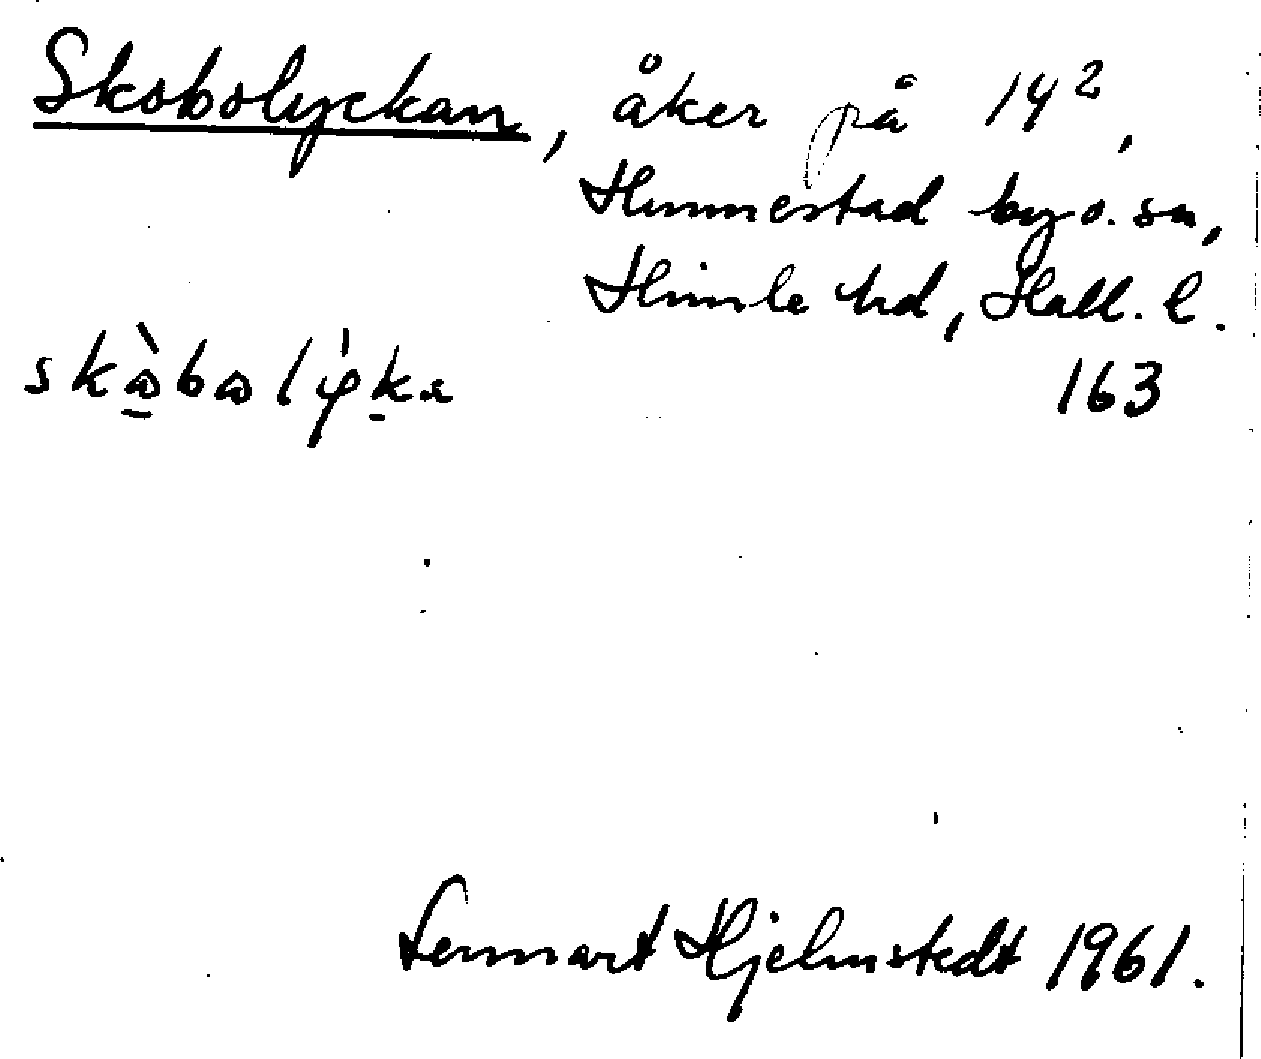 Skobolyckan, åker på 14²,
Hunnestad by o. sn,
Himle hd, Hall. l.
163
Lennart Hjelmstedt 1961.